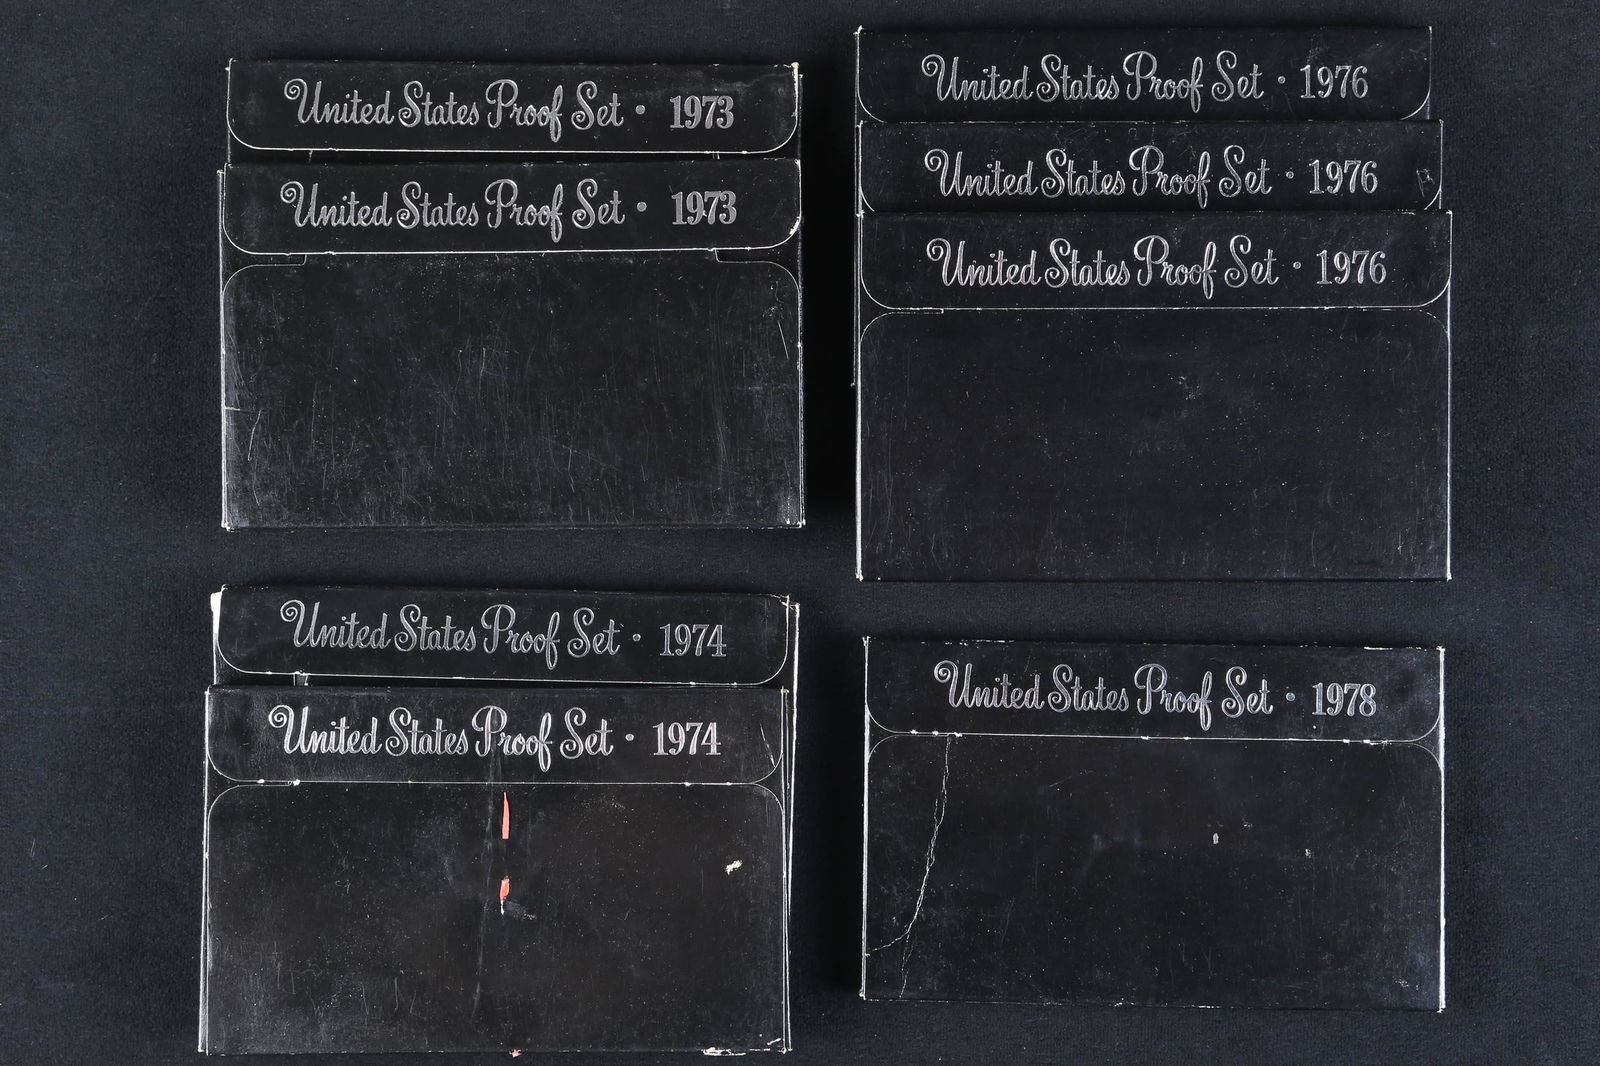 United States Proof Set • 1973
United States Proof Set • 1973
United States Proof Set • 1976
United States Proof Set • 1976
United States Proof Set • 1976
United States Proof Set • 1974
United States Proof Set • 1974
United States Proof Set • 1978